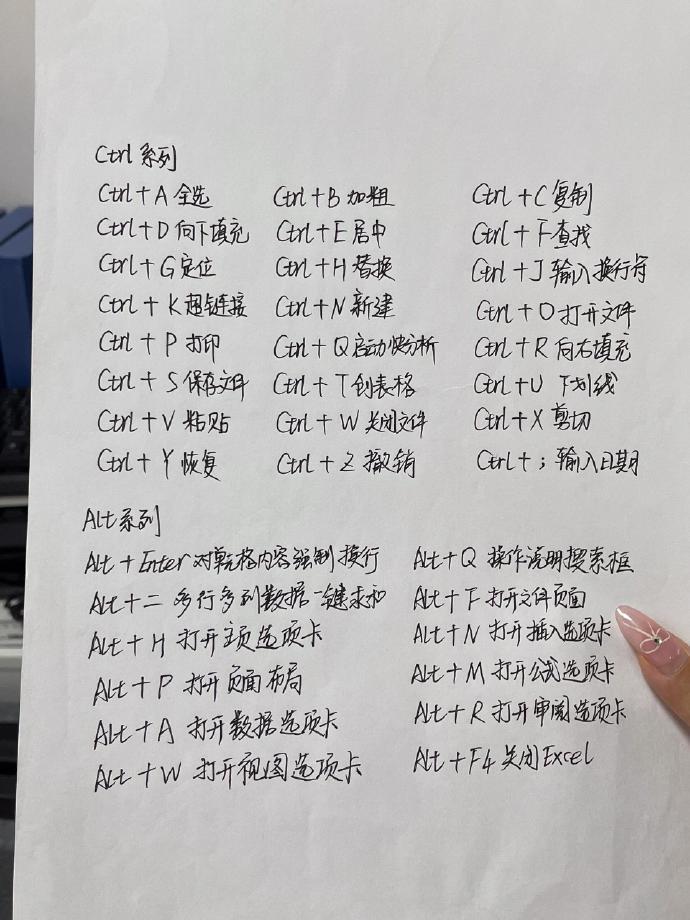 Ctrl系列
Ctrl+A 全选 Ctrl+B 加粗 Ctrl+C复制
Ctrl+D向下填充 Ctrl+E居中 Ctrl+F查找
Ctrl+G定位 Ctrl+H替换 Ctrl+J输入换行符
Ctrl+K超链接 Ctrl+N新建 Ctrl+O打开文件
Ctrl+P打印 Ctrl+Q启动快分析 Ctrl+R向右填充
Ctrl+S保存文件 Ctrl+T创表格 Ctrl+U下划线
Ctrl+V粘贴 Ctrl+W关闭文件 Ctrl+X剪切
Ctrl+Y恢复 Ctrl+Z撤销 Ctrl+;输入日期
Alt系列
Alt+Enter对单元格内容强制换行 Alt+Q操作说明搜索框
Alt+=多行多列数据一键求和 Alt+F打开文件页面
Alt+H打开主页选项卡 Alt+N打开插入选项卡
Alt+P打开页面布局 Alt+M打开公式选项卡
Alt+A打开数据选项卡 Alt+R打开审阅选项卡
Alt+W打开视图选项卡 Alt+F4关闭Excel